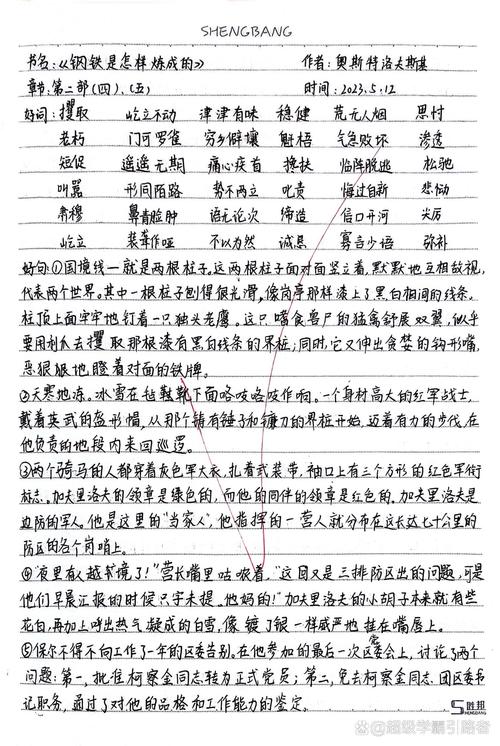 SHENGBANG
书名:《钢铁是怎样炼成的》 作者:奥斯特洛夫斯基
章节:第二部(四)、(五) 时间:2023.5.12
好词:攫取 屹立不动 津津有味 稳健 荒无人烟 思忖
老朽 门可罗雀 穷乡僻壤 魁梧 气急败坏 渗透
短促 遥遥无期 痛心疾首 搀扶 临阵脱逃 松驰
叫嚣 形同陌路 势不两立 叱责 悔过自新 悲恸
肃穆 鼻青脸肿 语无论次 缔造 信口开河 尖厉
屹立 装聋作哑 不以为然 诚恳 寡言少语 弥补
好句:①国境线一就是两根柱子,这两根柱子面对面竖立着,默默地互相敌视,
代表两个世界。其中一根柱子刨得很光滑,像岗亭那样漆上了黑白相间的线条,
柱顶上面牢牢地钉着一只独头老鹰。这只嗜食兽尸的猛禽舒展双翼,似乎
要用利爪去攫取那根漆有黑白线条的界桩;同时,它又伸出贪婪的钩形嘴,
恶狠狠地瞪着对面的铁牌。
②天寒地冻。冰雪在毡靴靴下面咯吱咯吱作响。一个身材高大的红军战士,
戴着英武的盔形帽,从那个铸有锤子和镰刀的界桩开始,迈着有力的步伐,在
他负责的地段内来回巡逻。
③两个骑马的人都穿着灰色军大衣,扎着武装带,袖口上有三个方形的红色军衔
标志。加夫里洛夫的领章是绿色的,而他的同伴的领章是红色的。加夫里洛夫是
边防的军人。他是这里的"当家人",他指挥的一营人就分布在这长达七十公里的
防区的各个岗哨上。
④"夜里有人越书境了!"营长嘴里咕哝着,"这回又是三排防区出的问题,可是
他们早晨汇报的时候只字未提。他妈的!"加夫里洛夫的小胡子本来就有些
花白,再加上呼出热气凝成的白雪,像镀了银一样威严地挂在嘴唇上。
⑤保尔不得不向工作了一年的区委告别。在他参加的最后一次区党委会上,讨论了两个
问题:第一,批准柯察金同志转为正式党员;第二,免去柯察金同志、团区委书
记职务,通过了对他的品格和工作能力的鉴定。
S 胜邦
SHENGBANG
@超级学霸引路者